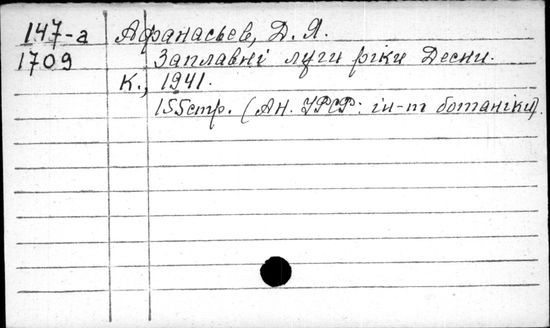 147-а Афанасьев, Д. Я.
1709 Заплавні луги ріки Десни.
К., 1941.
155стр. (Ан. УРСР: ін-т ботаніки).